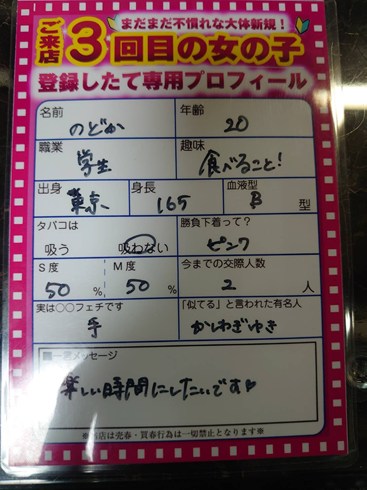 まだまだ不慣れな大体新規！
ご来店3回目の女の子
登録したて専用プロフィール
名前 年齢
のどか 20
職業 趣味
学生 食べること！
出身 身長 血液型
東京 165 B 型
タバコは 勝負下着って？
吸う 吸わない ピンク
S度 M度 今までの交際人数
50 % 50 % 2 人
実は〇〇フェチです 「似てる」と言われた有名人
手 かしわぎゆき
一言メッセージ
楽しい時間にしたいです♡
※当店は売春・買春行為は一切禁止となります※